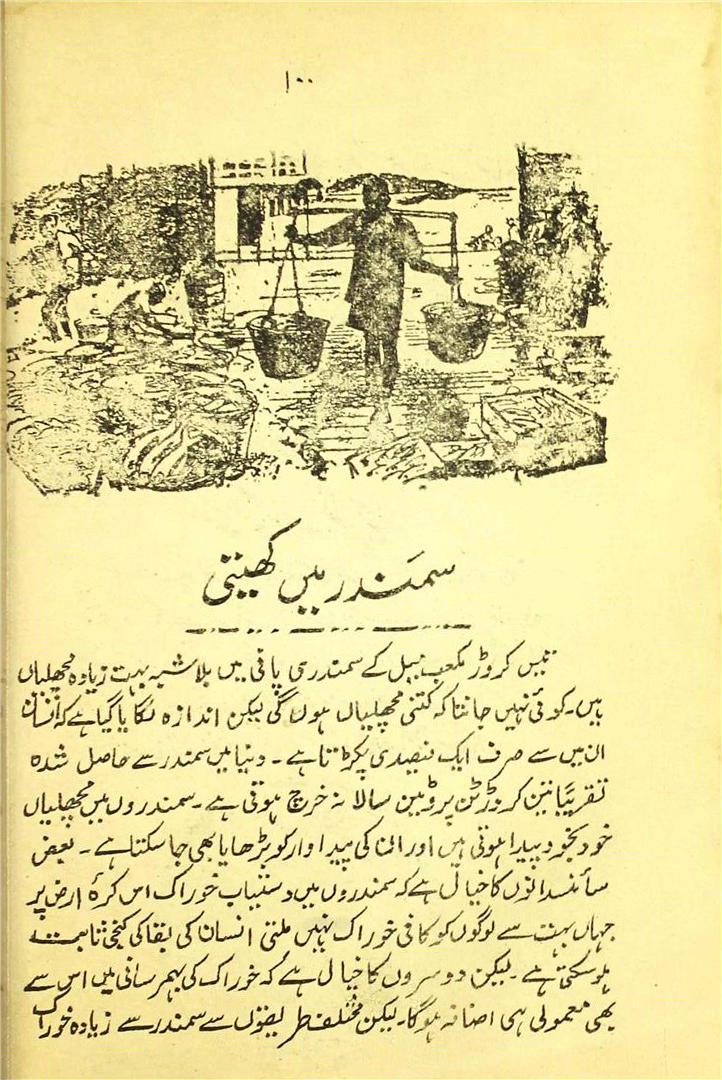 ۱۰۰
سمندر میں کھیتی
تیس کروڑ مکعب میل کے سمندری پانی میں بلاشبہ بہت زیادہ مچھلیاں
ہیں۔ کوئی نہیں جانتا کہ کتنی مچھلیاں ہوں گی لیکن اندازہ لگایا گیا ہے کہ انسان
ان میں سے صرف ایک فیصدی پکڑتا ہے۔ دنیا میں سمندر سے حاصل شدہ
تقریباً تین کروڑ ٹن پروٹین سالانہ خرچ ہوتی ہے۔ سمندروں میں مچھلیاں
خود بخود پیدا ہوتی ہیں اور ان کی پیداوار کو بڑھایا بھی جا سکتا ہے۔ بعض
سائنسدانوں کا خیال ہے کہ سمندروں میں دستیاب خوراک اس کرۂ ارض پر
جہاں بہت سے لوگوں کو کافی خوراک نہیں ملتی انسان کی بقا کی کنجی ثابت
ہو سکتی ہے۔ لیکن دوسروں کا خیال ہے کہ خوراک کی بہم رسانی میں اس سے
بھی معمولی ہی اضافہ ہوگا۔ لیکن مختلف طریقوں سے سمندر سے زیادہ خوراک